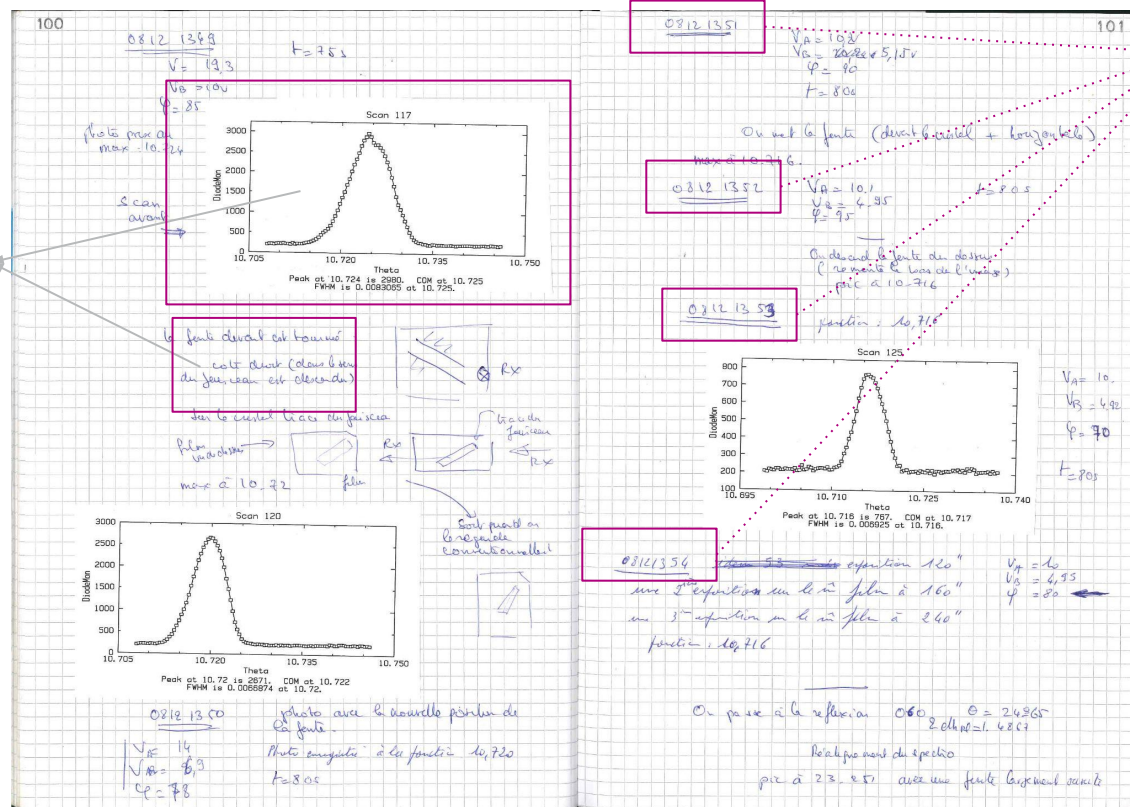 100
0812 1349
t = 75s
V = 19.3
VB = 10v
φ = 85
max : 10.724
Scan 117
DiodeMon
3000
2500
2000
1500
1000
500
0
10.705
10.720
10.735
10.750
Theta
Peak at 10.724 is 2980. COM at 10.725
FWHM is 0.0083065 at 10.725.
scan
avant
la fente devant est tourné
coté droit (dans le sens
du faisceau est descendu)
RX
sur le cristal trace du faisceau
trace du
faisceau
film
RX
RX
max à 10.72
film
Scan 120
DiodeMon
3000
2500
2000
1500
1000
500
0
10.705
10.720
10.735
10.750
Theta
Peak at 10.72 is 2671. COM at 10.722
FWHM is 0.0066874 at 10.72.
on
le regarde
conventionnellement
0812 1350
photo avec la nouvelle position de
la fente.
14
Photo enregistré à la position 10,720
t = 80s
φ = 78
101
0812 1351
VA = 10,8
VB = 5,15v
φ = 90
t = 80s
On met la fente (devant le cristal + horizontale)
max à 10.716.
0812 1352
VA = 10,1
VB = 4.95
φ = 95
t = 80s
On descend la fente du dessus
(remonte le bas de l'image)
pic à 10.716
0812 1353
position : 10,716
Scan 125
DiodeMon
800
700
600
500
400
300
200
100
10.695
10.710
10.725
10.740
Theta
Peak at 10.716 is 767. COM at 10.717
FWHM is 0.006925 at 10.716.
VA = 10.
VB = 4,92
φ = 70
t = 80s
08121354
exposition 120"
VA = 10
VB = 4,95
φ = 80
une 2ème exposition sur le m̂ film à 160"
une 3ème exposition sur le m̂ film à 240"
position : 10,716
On passe à la reflexion 060 θ = 24965
Réalignement du spectro
pic à 23.251 avec une fente largement ouverte